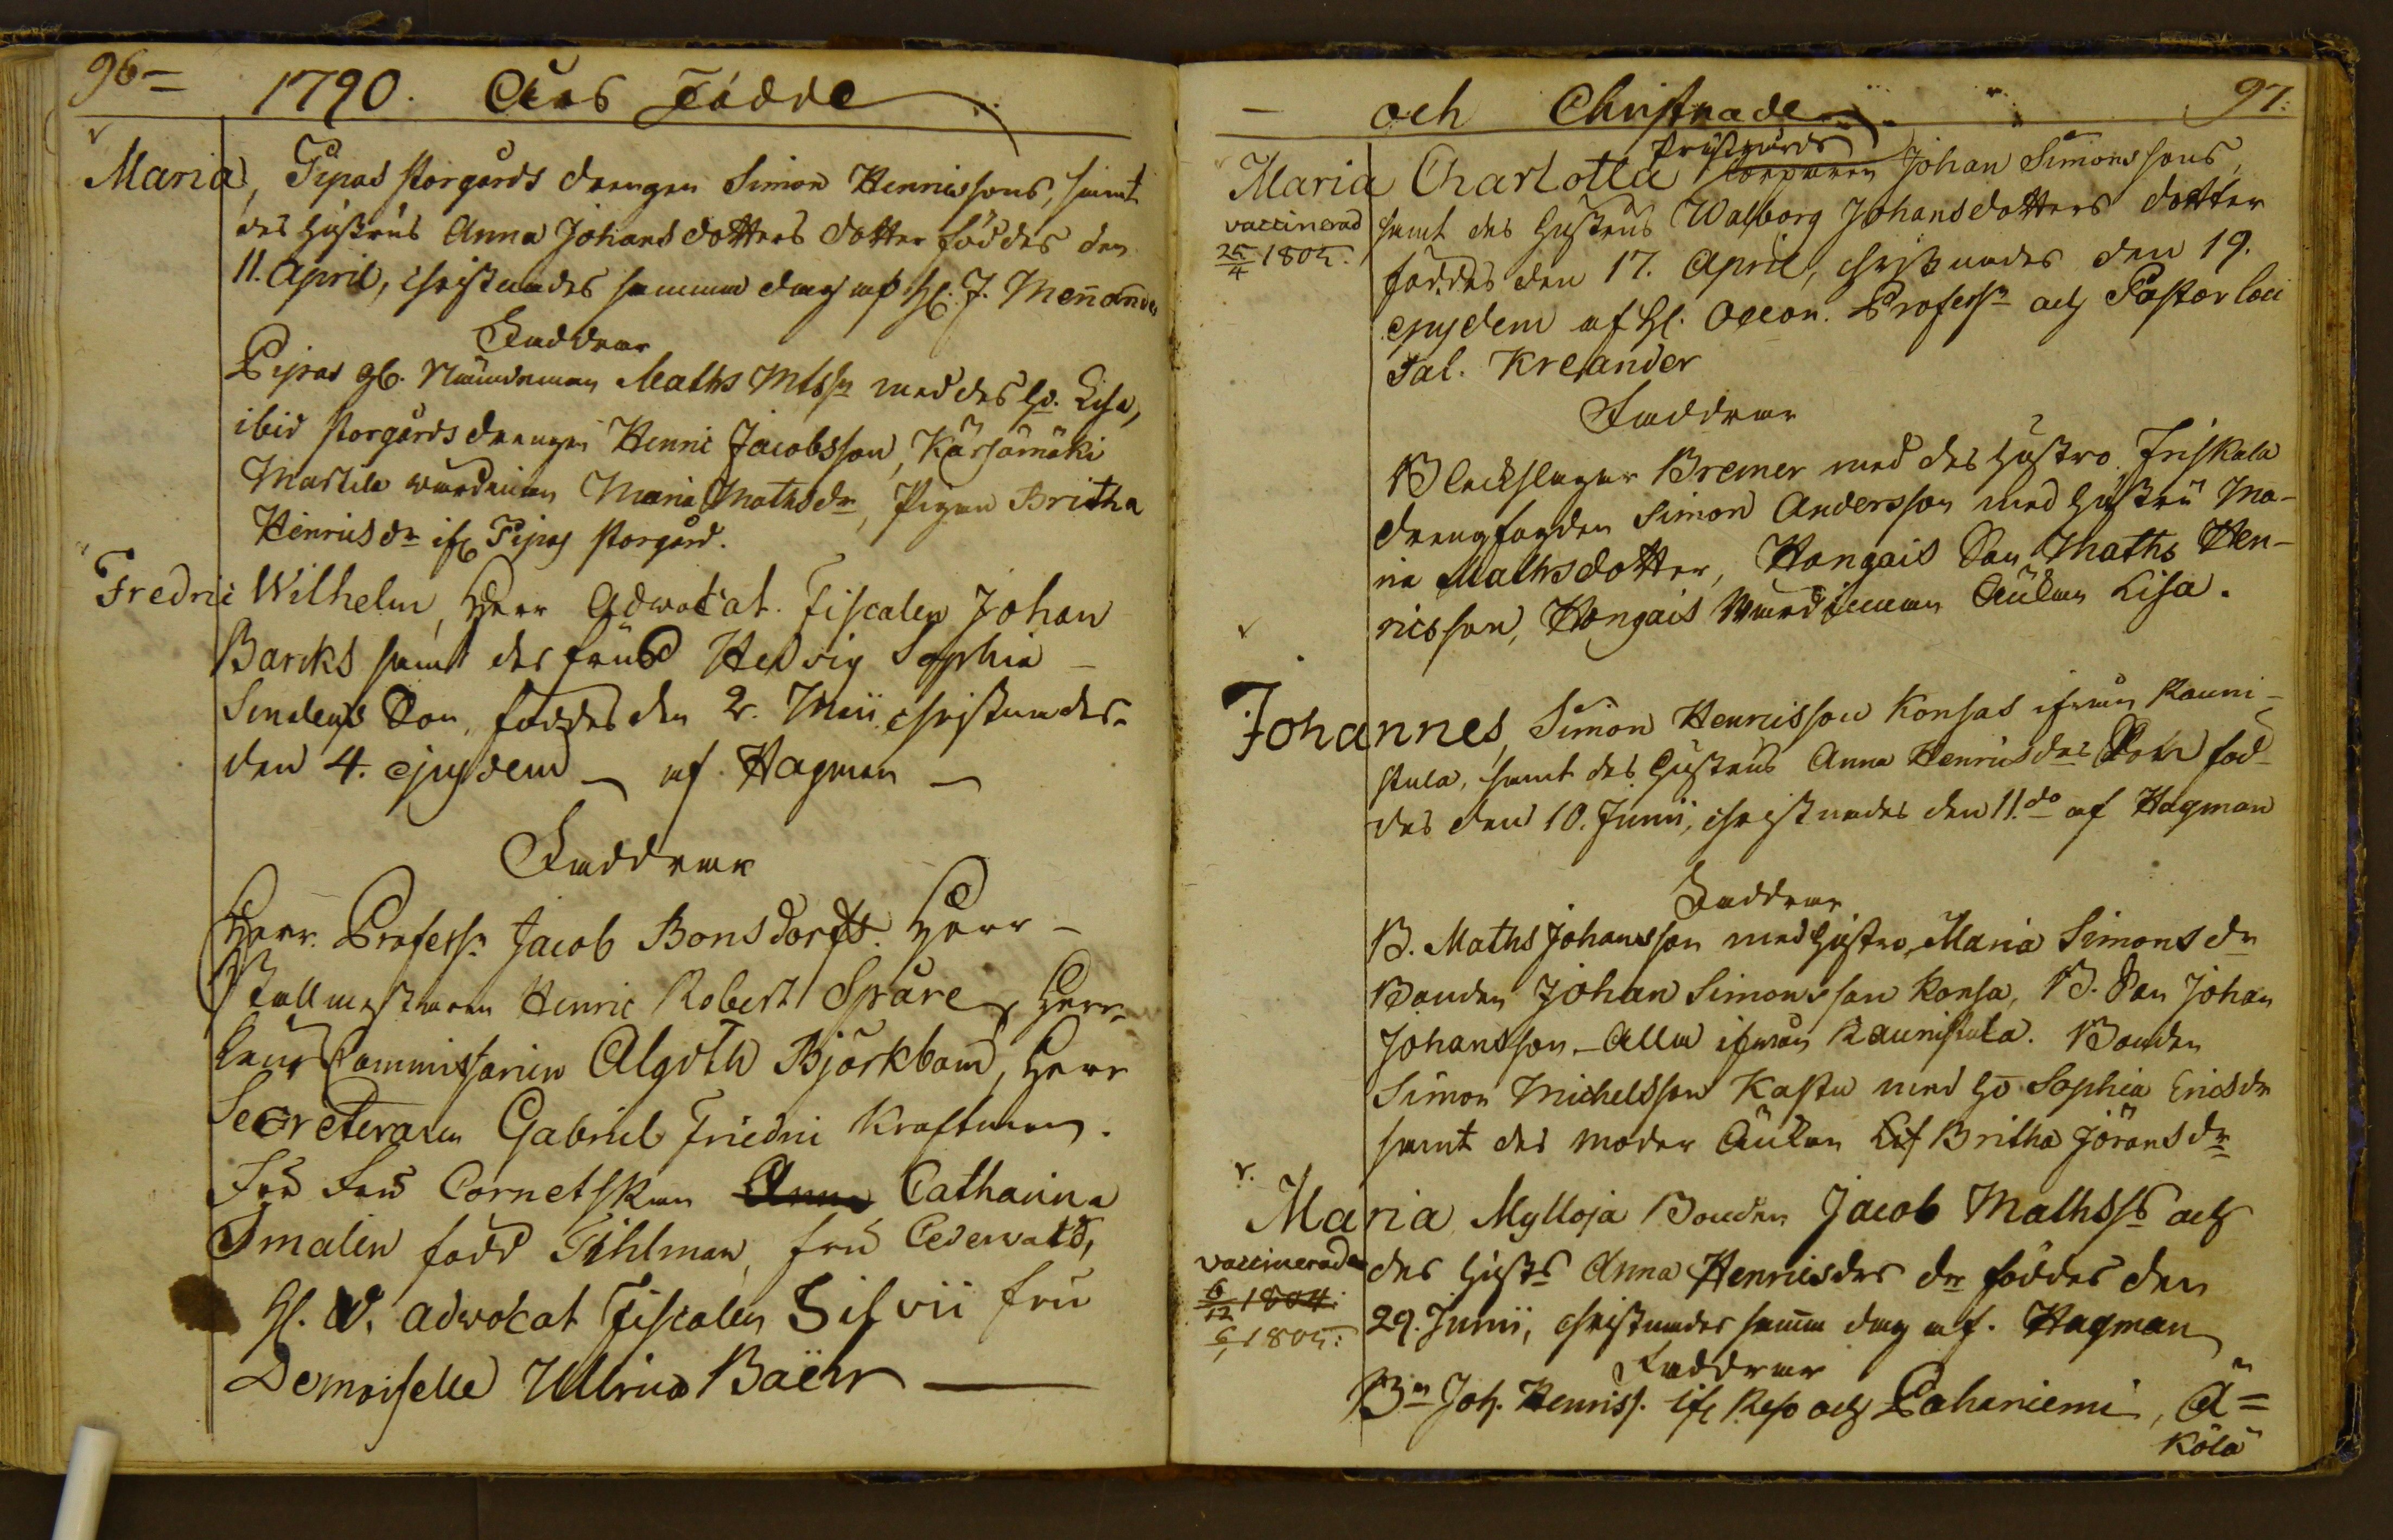 96
1790. Års Födde
Maria, Pipas storgårds drengen Simon Henricssons, samt
des hustrus Anna Johansdotters dotter föddes den
11. April, christnades samma dag af H. J. Menander
Faddrar
Pipas gl. Nämdeman Maths Mtssn med des h. Lisa,
ibid storgårds drengen Henric Jacobsson, Kärsämäki
Martila wärdinnan Maria Mathsdr, Pigan Britha
Henricsdr if. Pipas storgård.
Fredric Wilhelm, Herr Advocat. Fiscalen Johan
Barcks samt des frus Hedvig Sophia
Son, föddes den 2. Maii christnades
den 4. ejusdem af Hagman
Faddrar
Herr Professr Jacob Bonsdorff. Herr
Stallmestaren Henric Robert Spåre, Herr
Commissarien Algoth Björkbom, Herr
Secreteraren Gabriel Friedric Kraftman.
Cornetskan Anna Catharina
Amalén född Tihlman, fru Cederwald,
H. V. Advocat Fiscalen Silvii fru
Demoiselle Ulrica Baëhr
97.
och Christnade
Prästgårds
Maria Charlotta Torparen Johan Simonssons,
vaccinerad samt des hustrus Walborg Johansdotters dotter
25/4 1805. föddes den 17. April, christnades den 19.
ejusdem af H. Oecon. Professr och Pastor loci
Sal. Kreander
Faddrar
Bleckslagar Bremer med des hustro. Friskala
drengfogden Simon Andersson med hustru Ma-
ria Mathsdotter, Hongais Son Maths Hen-
ricsson, Hongais Wärdinnan Änkan Lisa.
Johannes, Simon Henricsson Konsas ifrån Rauni-
stula, samt des hustrus Anna Henricsdrs Son föd-
des den 10. Junii, christnades den 11. do af Hagman
Faddrar
B. Maths Johansson med hustro Maria Simonsdr
Bonden Johan Simonsson Konsa, B. Son Johan
Johansson. Alla ifrån Raunistula. Bonden
Simon Michelsson Kastu med ho Sophia Ericsdr
samt des moder Änkan Britha Jöransdr
Maria Mylloja Bonden Jacob Mathss och
vaccinerad des hustrs Anna Henricsdrs dr föddes den
6/12 1804. 29. Junii, christnades samma dag af. Hagman
1805.
Faddrar
Bn Joh. Henrics. if. Reso och Pahaniemi, Ä=
kölä